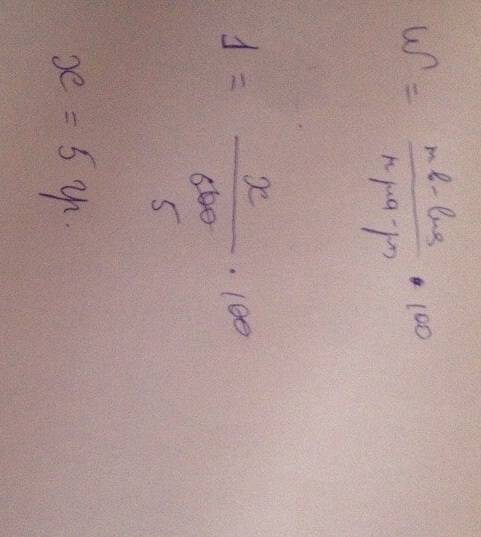 W = m в-ва / m р-ра · 100
1 = x / 500 · 100
5
x = 5 гр.